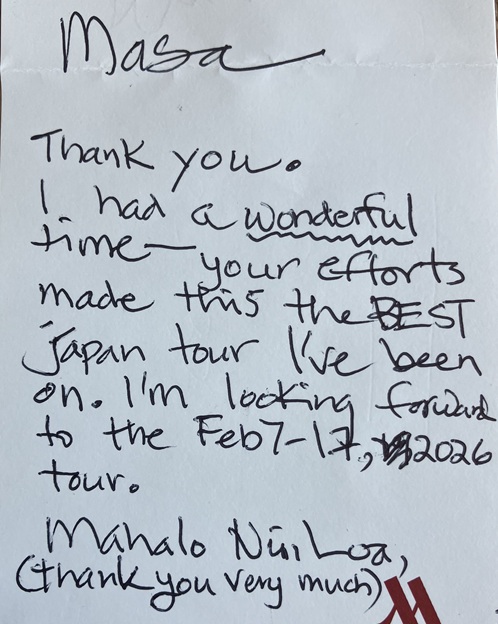 Masa
Thank you.
I had a wonderful
time—your efforts
made this the BEST
Japan tour I've been
on. I'm looking forward
to the Feb 7-17, 2026
tour.
Mahalo Nui Loa,
(thank you very much)